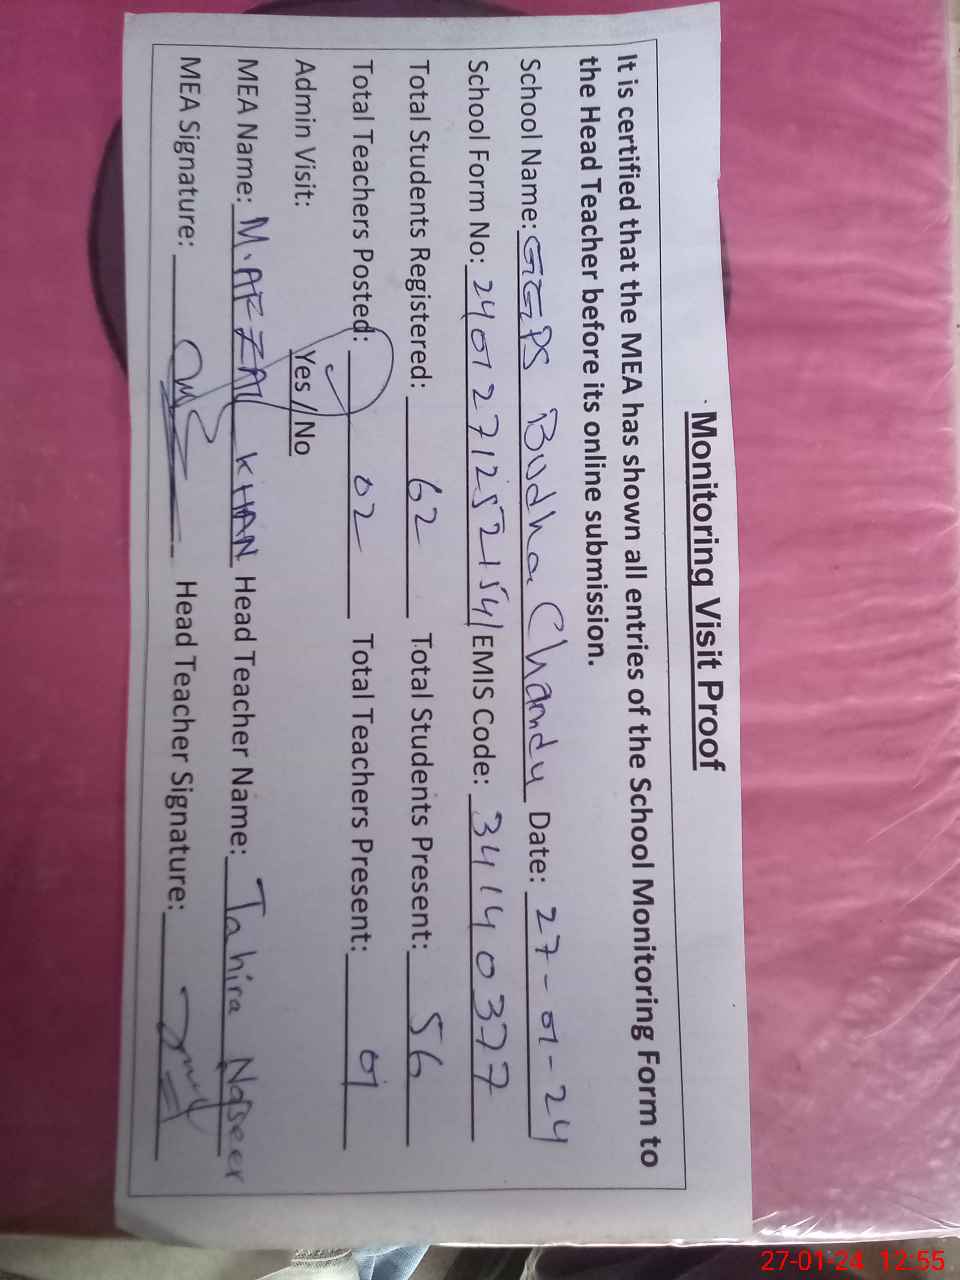 Monitoring Visit Proof
It is certified that the MEA has shown all entries of the School Monitoring Form to
the Head Teacher before its online submission.
School Name: GGPS Budha Chandu Date: 27-01-24
School Form No: 2401271252154 EMIS Code: 34140377
Total Students Registered: 62 Total Students Present: 56
Total Teachers Posted: 02 Total Teachers Present: 01
Admin Visit: Yes / No
MEA Name: M. AFZAL KHAN Head Teacher Name: Tahira Naseer
MEA Signature: Head Teacher Signature:
27-01-24 12:55